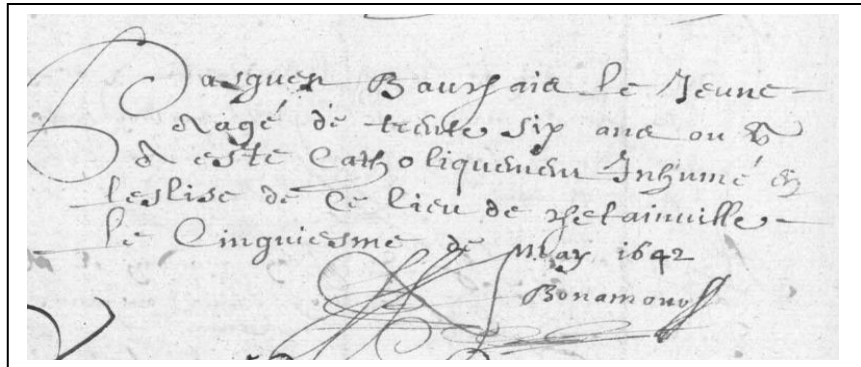 Pasquer Bauchais le Jeune
aagé de trente six ans ou
a esté Catholiquement Inhumé en
leglise de Ce lieu de chetainville
le Cinquiesme de May 1642
Bonamour